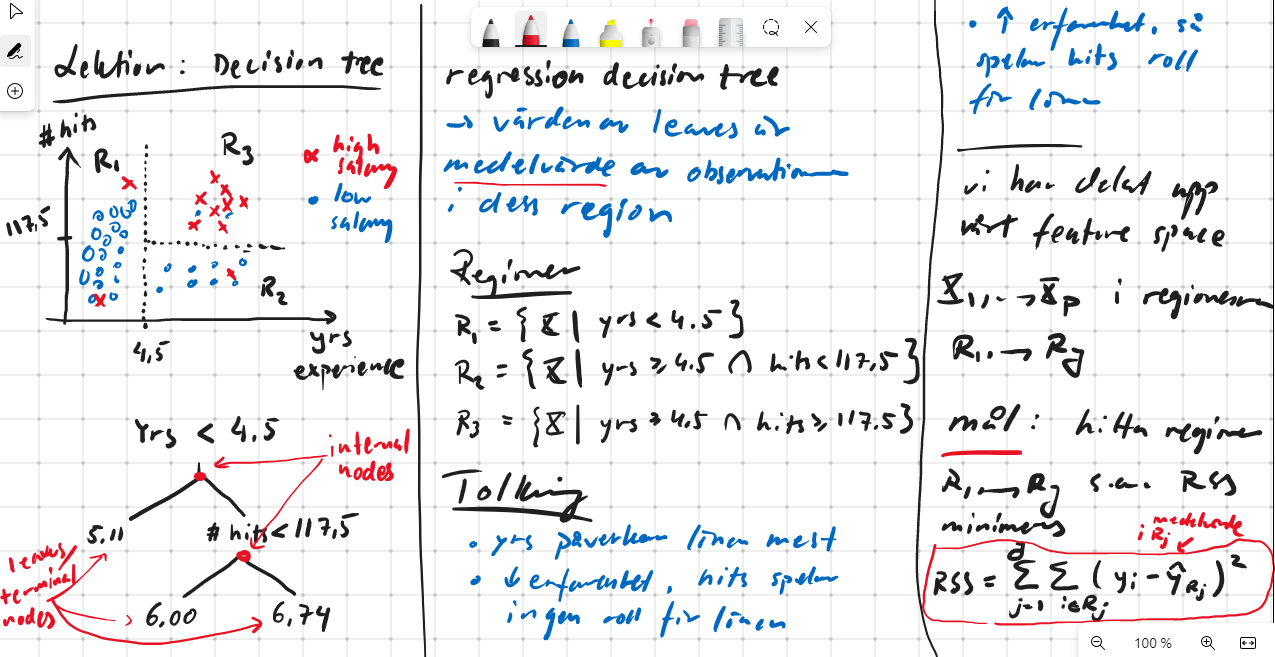 Lektion: Decision tree
# hits
R₁
R₃
x high
salary
• low
salary
117,5
R₂
4,5
yrs
experience
Yrs < 4.5
internal
nodes
5.11
# hits < 117,5
leaves/
terminal
nodes
6.00
6,74
regression decision tree
→ värden av leaves är
medelvärde av observationer
i dess region
Regioner
R₁ = {X | yrs < 4.5}
R₂ = {X | yrs ≥ 4.5 ∩ hits < 117,5}
R₃ = {X | yrs ≥ 4.5 ∩ hits ≥ 117.5}
Tolkning
• yrs påverkar lönen mest
• ↓ erfarenhet, hits spelar
ingen roll för lönen
• ↑ erfarenhet, så
spelar hits roll
för lönen
vi har delat upp
vårt feature space
X₁,...→ Xp i regionerna
R₁,.→ Rj
mål: hitta regioner
R₁,...→ Rj s.a. RSS
minimeras
medelvärde
i Rj
RSS = Σ Σ (yi - ŷRj)²
J
j=1 i∈Rj
100 %